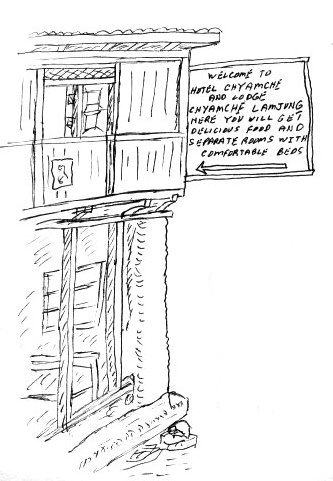 WELCOME TO
HOTEL CHYAMCHE
AND LODGE
CHYAMCHE LAMJUNG
HERE YOU WILL GET
DELICIOUS FOOD AND
SEPARATE ROOMS WITH
COMFORTABLE BEDS